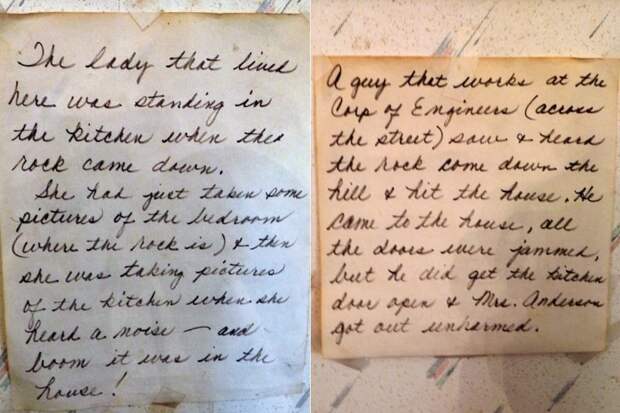 The lady that lived
here was standing in
the kitchen when the
rock came down.
She had just taken some
pictures of the bedroom
(where the rock is) & then
she was taking pictures
of the kitchen when she
heard a noise — and
boom it was in the
house!
A guy that works at the
Corp of Engineers (across
the street) saw & heard
the rock come down the
hill & hit the house. He
came to the house, all
the doors were jammed,
but he did get the kitchen
door open & Mrs. Anderson
got out unharmed.